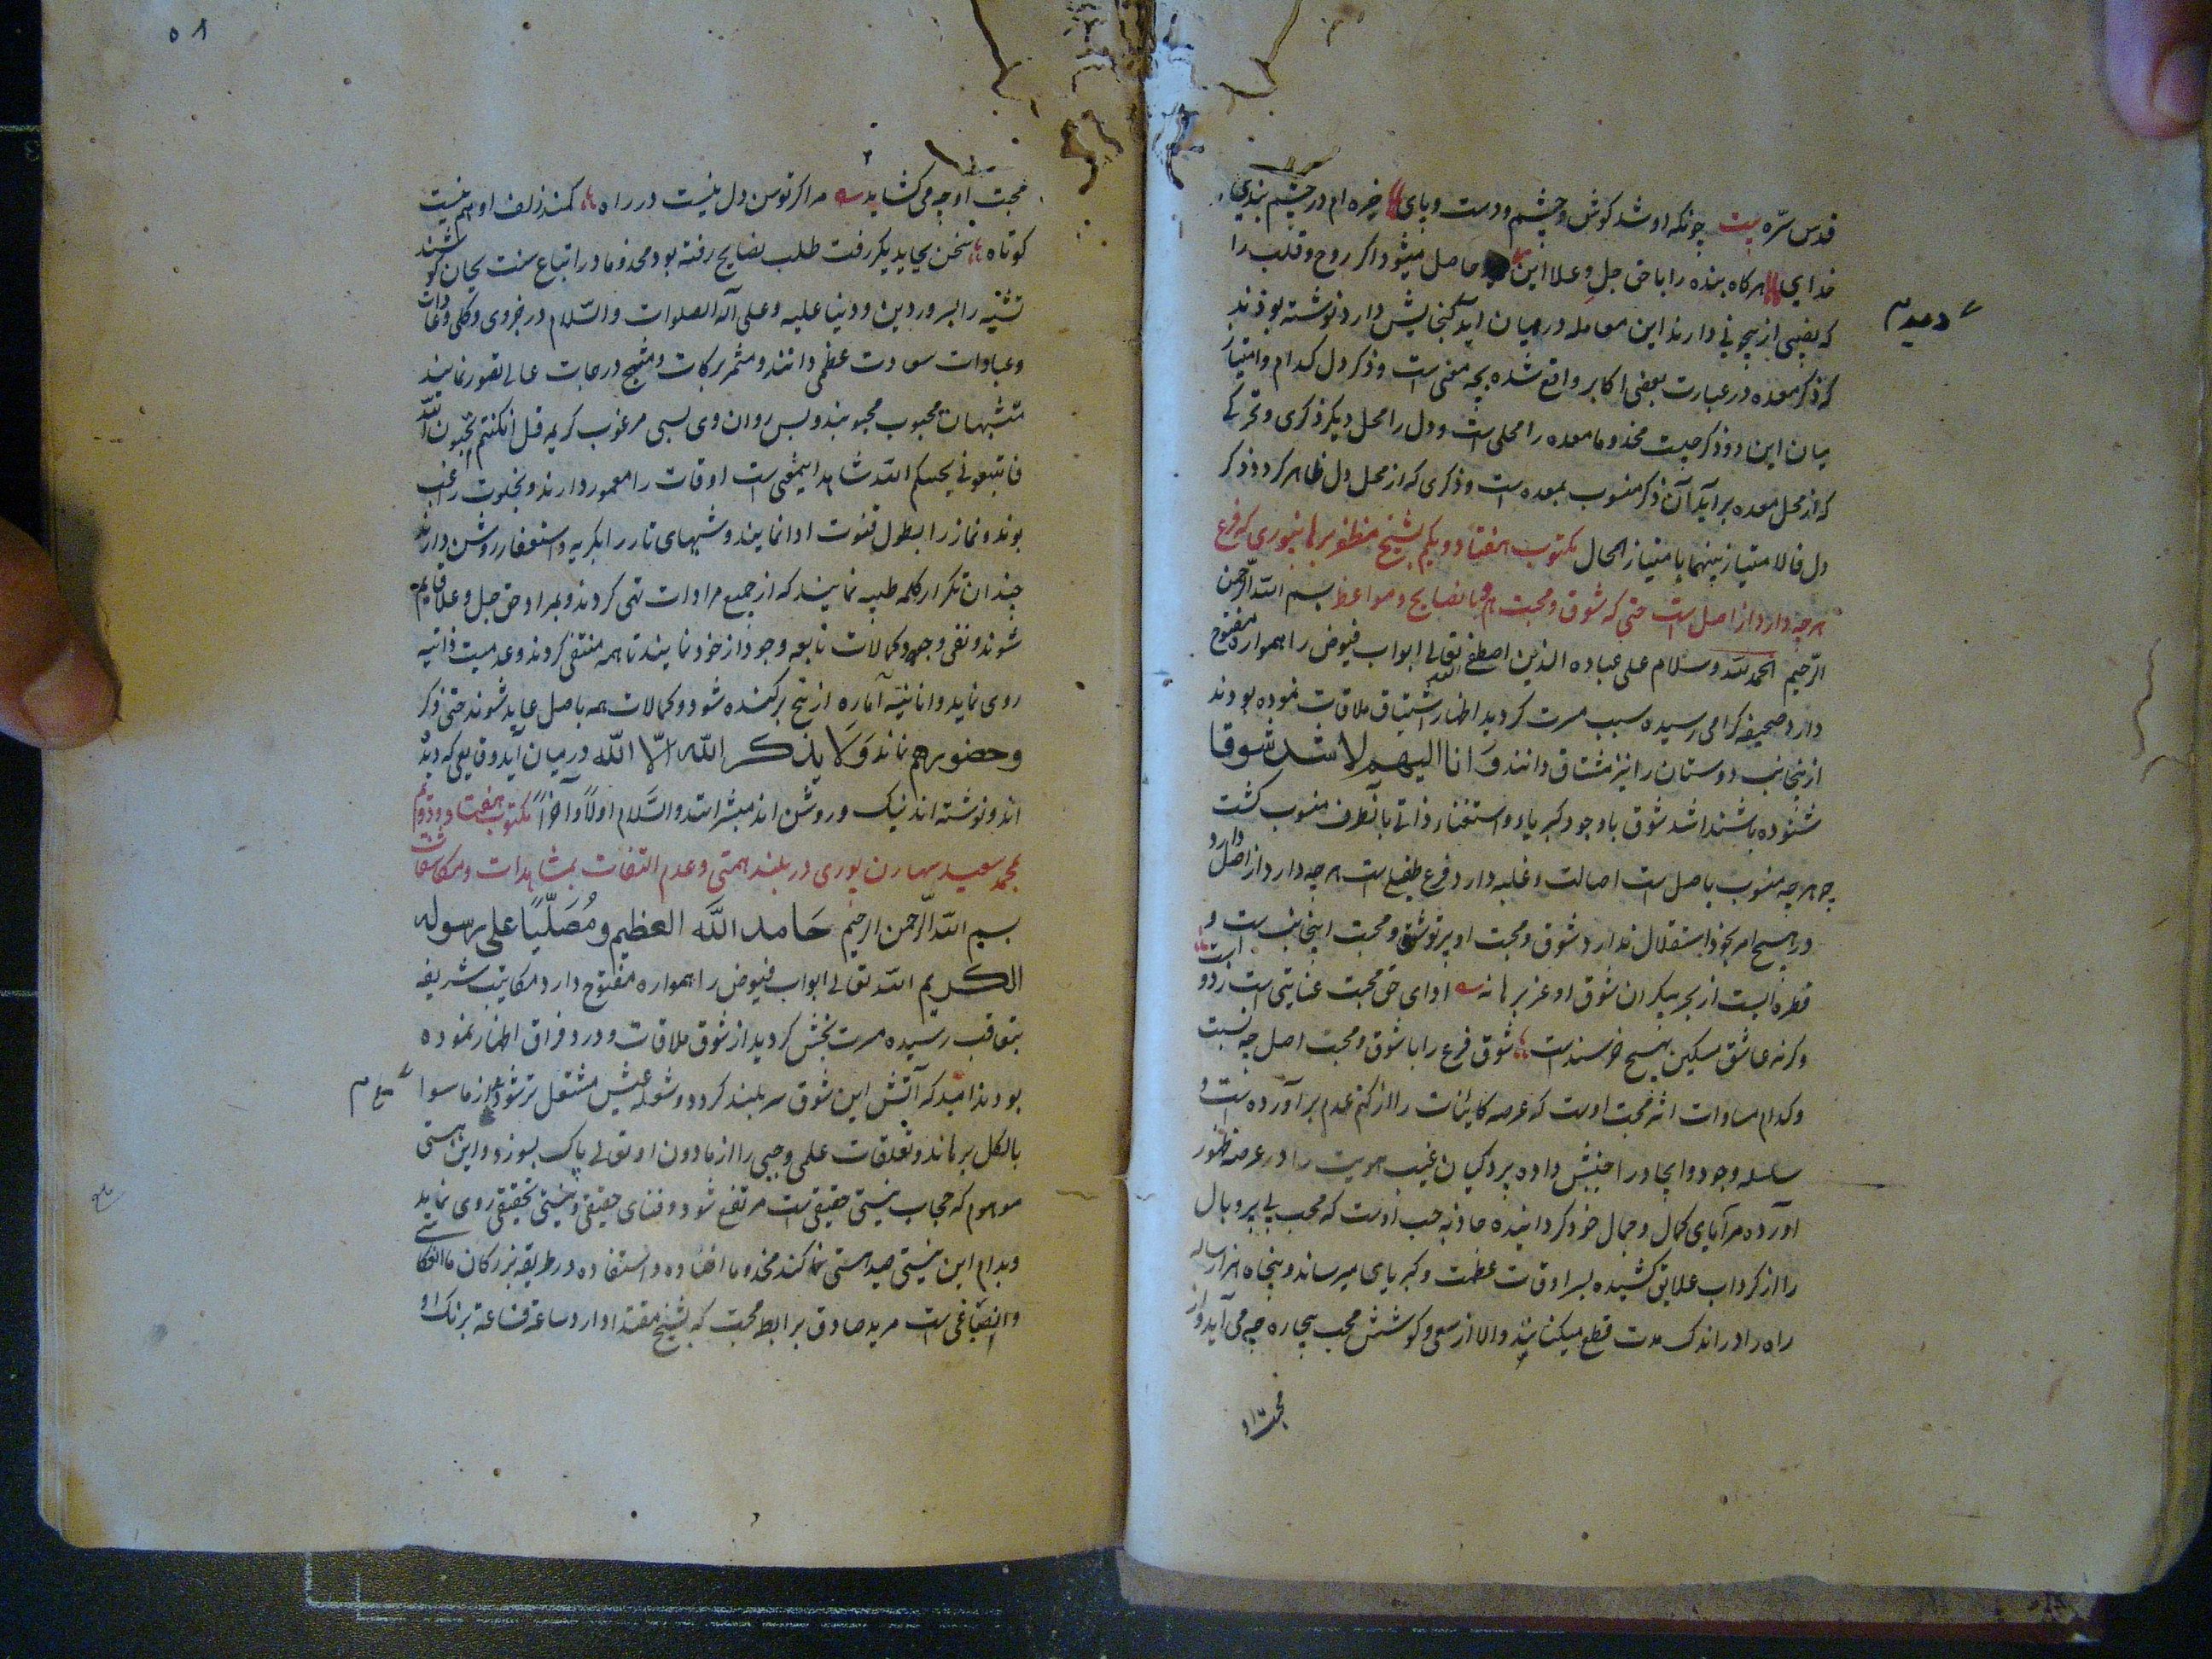 قدس سرّه بیت چونکه او شد کوش و چشم و دست و پای خیره ام در چشم بندی
خدای هرکاه بنده را با حق جل و علا این حاصل میشود اکر روح و قلب را
که نصیبی از بیچونی دارند این معامله در میان آید کنجایش دارد نوشته بودند
که ذکر معده در عبارت بعضی اکابر واقع شده بچه معنی است و ذکر دل کدام و امتیاز
میان این دو ذکر چیست مخدوما معده را محلی است و دل را محل دیکر ذکری و تحرکی
که از محل معده برآید آن ذکر منسوب بمعده است و ذکری که از محل دل ظاهر کردد ذکر
دل فالامتیاز بینهما بامتیاز المحال مکتوب هفتاد و یکم بشیخ مظفر برهانپوری که فرع
هرچه دارد از اصل است حتی که شوق و محبت هم و با نصایح و مواعظ بسم الله الرحمن
الرحیم الحمد لله و سلام علی عباده الذین اصطفی الله تعالی ابواب فیوض را همواره مفتوح
دارد صحیفه کرامی رسیده سبب مسرت کردید اظهار اشتیاق ملاقات نموده بودند
ازینجانب دوستان را نیز مشتاق دانند و انا الیهم لاشد شوقا
شنوده باشند اشد شوق باوجود کبریاء و استغناء ذاتی بآنطرف منسوب کشت
چه هرچه منسوب باصل است اصالت و غلبه دارد فرع طفیلی است هرچه دارد از اصل دارد
در هیچ امر بخود استقلال ندارد شوق و محبت او پرتو شوق و محبت اینجانب است و
قطره ایست از بحر بیکران شوق او عز برهانه ادای حق محبت عنایتی است ز دوست
وکرنه عاشق مسکین بهیچ خرسند است شوق فرع را با شوق و محبت اصل چه نسبت
و کدام مساوات اثر محبت اوست که عرصه کاینات را از کتم عدم برآورده است و
سلسله وجود و ایجاد را جنبش داده پردکیان غیب هویت را در عرصه ظهور
آورده مرآیای کمال و جمال خود کردانیده جاذبه حب اوست که محب بی پر و بال
را از کرداب علایق کشیده بسرادقات عظمت و کبریای میرساند و پنجاه هزار ساله
راه را در اندک مدت قطع میکناند والا از سعی و کوشش محب بیچاره چه می آید و از
محبت او
۵۸
محبت او چه می کشاید مرا کر توسن دل نیست در راه کمند زلف او هم نیست
کوتاه سخن بجای دیکر رفت طلب نصایح رفته بود مخدوما در اتباع سنت بجان کوشند
تشبّه را بسرور دین و دنیا علیه و علی آله الصلوات و السلام در جزوی و کلی و عادات
و عبادات سعادت عظمی دانند و مثمر برکات و منتج درجات عالی تصور نمایند
متشبهان محبوب محبوبند و پس روان وی بسی مرغوب کریمه قل ان کنتم تحبون الله
فاتبعونی یحببکم الله شاهد اینمعنی است اوقات را معمور دارند و بخلوت راغب
بوند و نماز را بطول قنوت ادا نمایند و شبهای تار را بکریه و استغفار روشن دارند
چندان تکرار کلمه طیبه نمایند که از جمیع مرادات تهی کردند و بمراد حق جل و علا قایم
شوند و نفی وجود و کمالات تابعه وجود از خود نمایند تا همه منتفی کردند و عدمیت ذاتیه
روی نماید و انانیّت اماره از بیخ برکنده شود و کمالات همه باصل عاید شوند حتی ذکر
و حضور هم نماند و لا یذکر الله الا الله در میان آید وقایعی که دیده
اند و نوشته اند نیک و روشن اند مبشراتند و السلام اولاً و آخراً مکتوب هفتاد و دوم
بمحمد سعید سهارنپوری در بلند همتی و عدم التفات بمشاهدات و مکاشفات
بسم الله الرحمن الرحیم حامد الله العظیم و مُصَلّیاً علی رسوله
الکریم الله تعالی ابواب فیوض را همواره مفتوح دارد مکاتیب شریفه
بتعاقب رسیده مسرت بخش کردید از شوق ملاقات و درد فراق اظهار نموده
بودند امید که آتش این شوق سر بلند کردد و شعله عشق مشتعل تر شود از ماسوا
بالکل برهاند و تعلقات علمی و حبی را از مادون او تعالی پاک بسوزد و این هستی
موهوم که حجاب نیستی حقیقی است مرتفع شود و فنای حقیقی و نیستی تحقیقی روی نماید
و بدام این نیستی صید هستی نماکند مخدوما افاده و استفاده در طریقه بزرکان ما انعکاسی
و انصباغی است مرید صادق برابط محبت که بشیخ مقتدا دارد ساعة فساعة برنک او